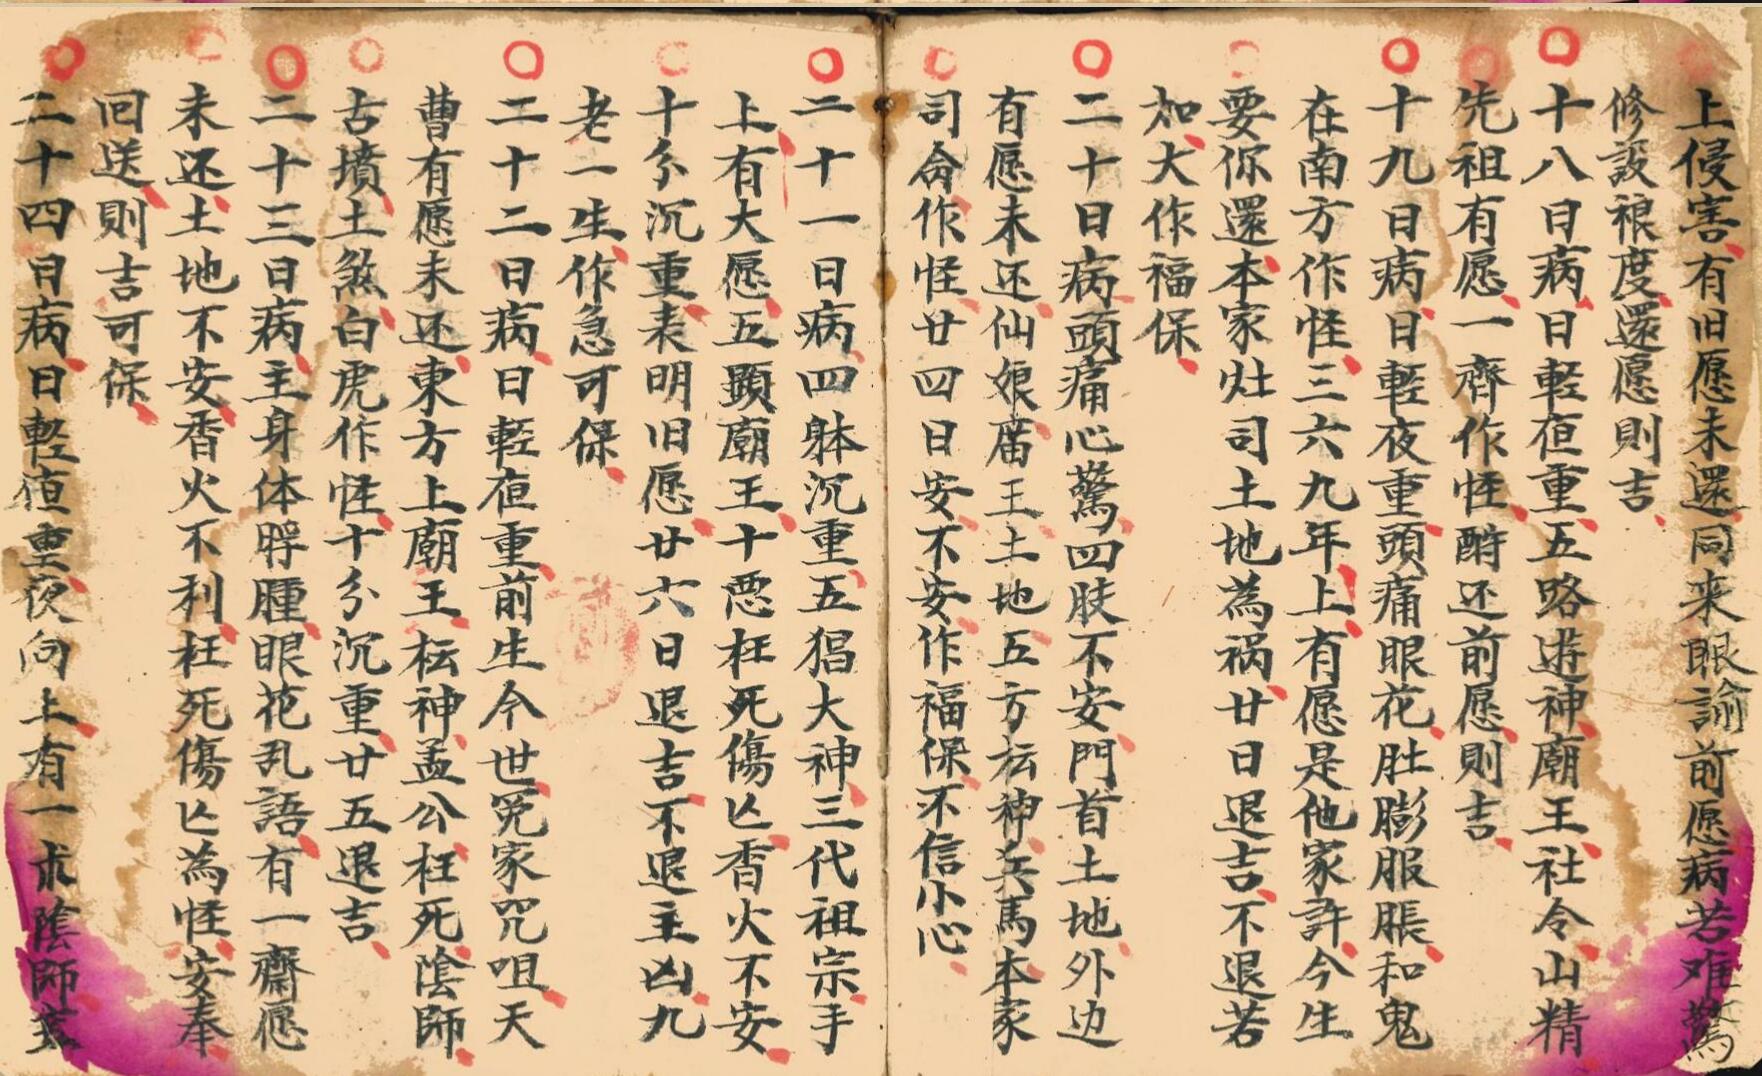 上侵害有旧愿未還同来眼諭前愿病若难驚
修設禳度還愿則吉
十八日病日輕夜重五路遊神廟王社令山精
先祖有愿一齊作怪酧还前愿則吉
十九日病日輕夜重頭痛眼花肚膨服脹和鬼
在南方作怪三六九年上有愿是他家許今生
要你還本家灶司土地為禍廿日退吉不退若
加大作福保
二十日病頭痛心驚四肢不安門首土地外边
有愿未还仙娘庿王土地五方枟神兵馬本家
司命作怪廿四日安不安作福保不信小心
二十一日病四躰沉重五猖大神三代祖宗手
上有大愿五顯廟王十惡枉死傷亾香火不安
十分沉重表明旧愿廿六日退吉不退主凶九
老一生作急可保
二十二日病日輕夜重前生今世冤家咒咀天
曹有愿未还東方上廟王枟神孟公枉死陰師
古墳土煞白虎作怪十分沉重廿五退吉
二十三日病主身体脬腫眼花乱語有一齋愿
未还土地不安香火不利枉死傷亾為怪安奉
回送則吉可保
二十四日病日輕夜重夜向上有一求陰師